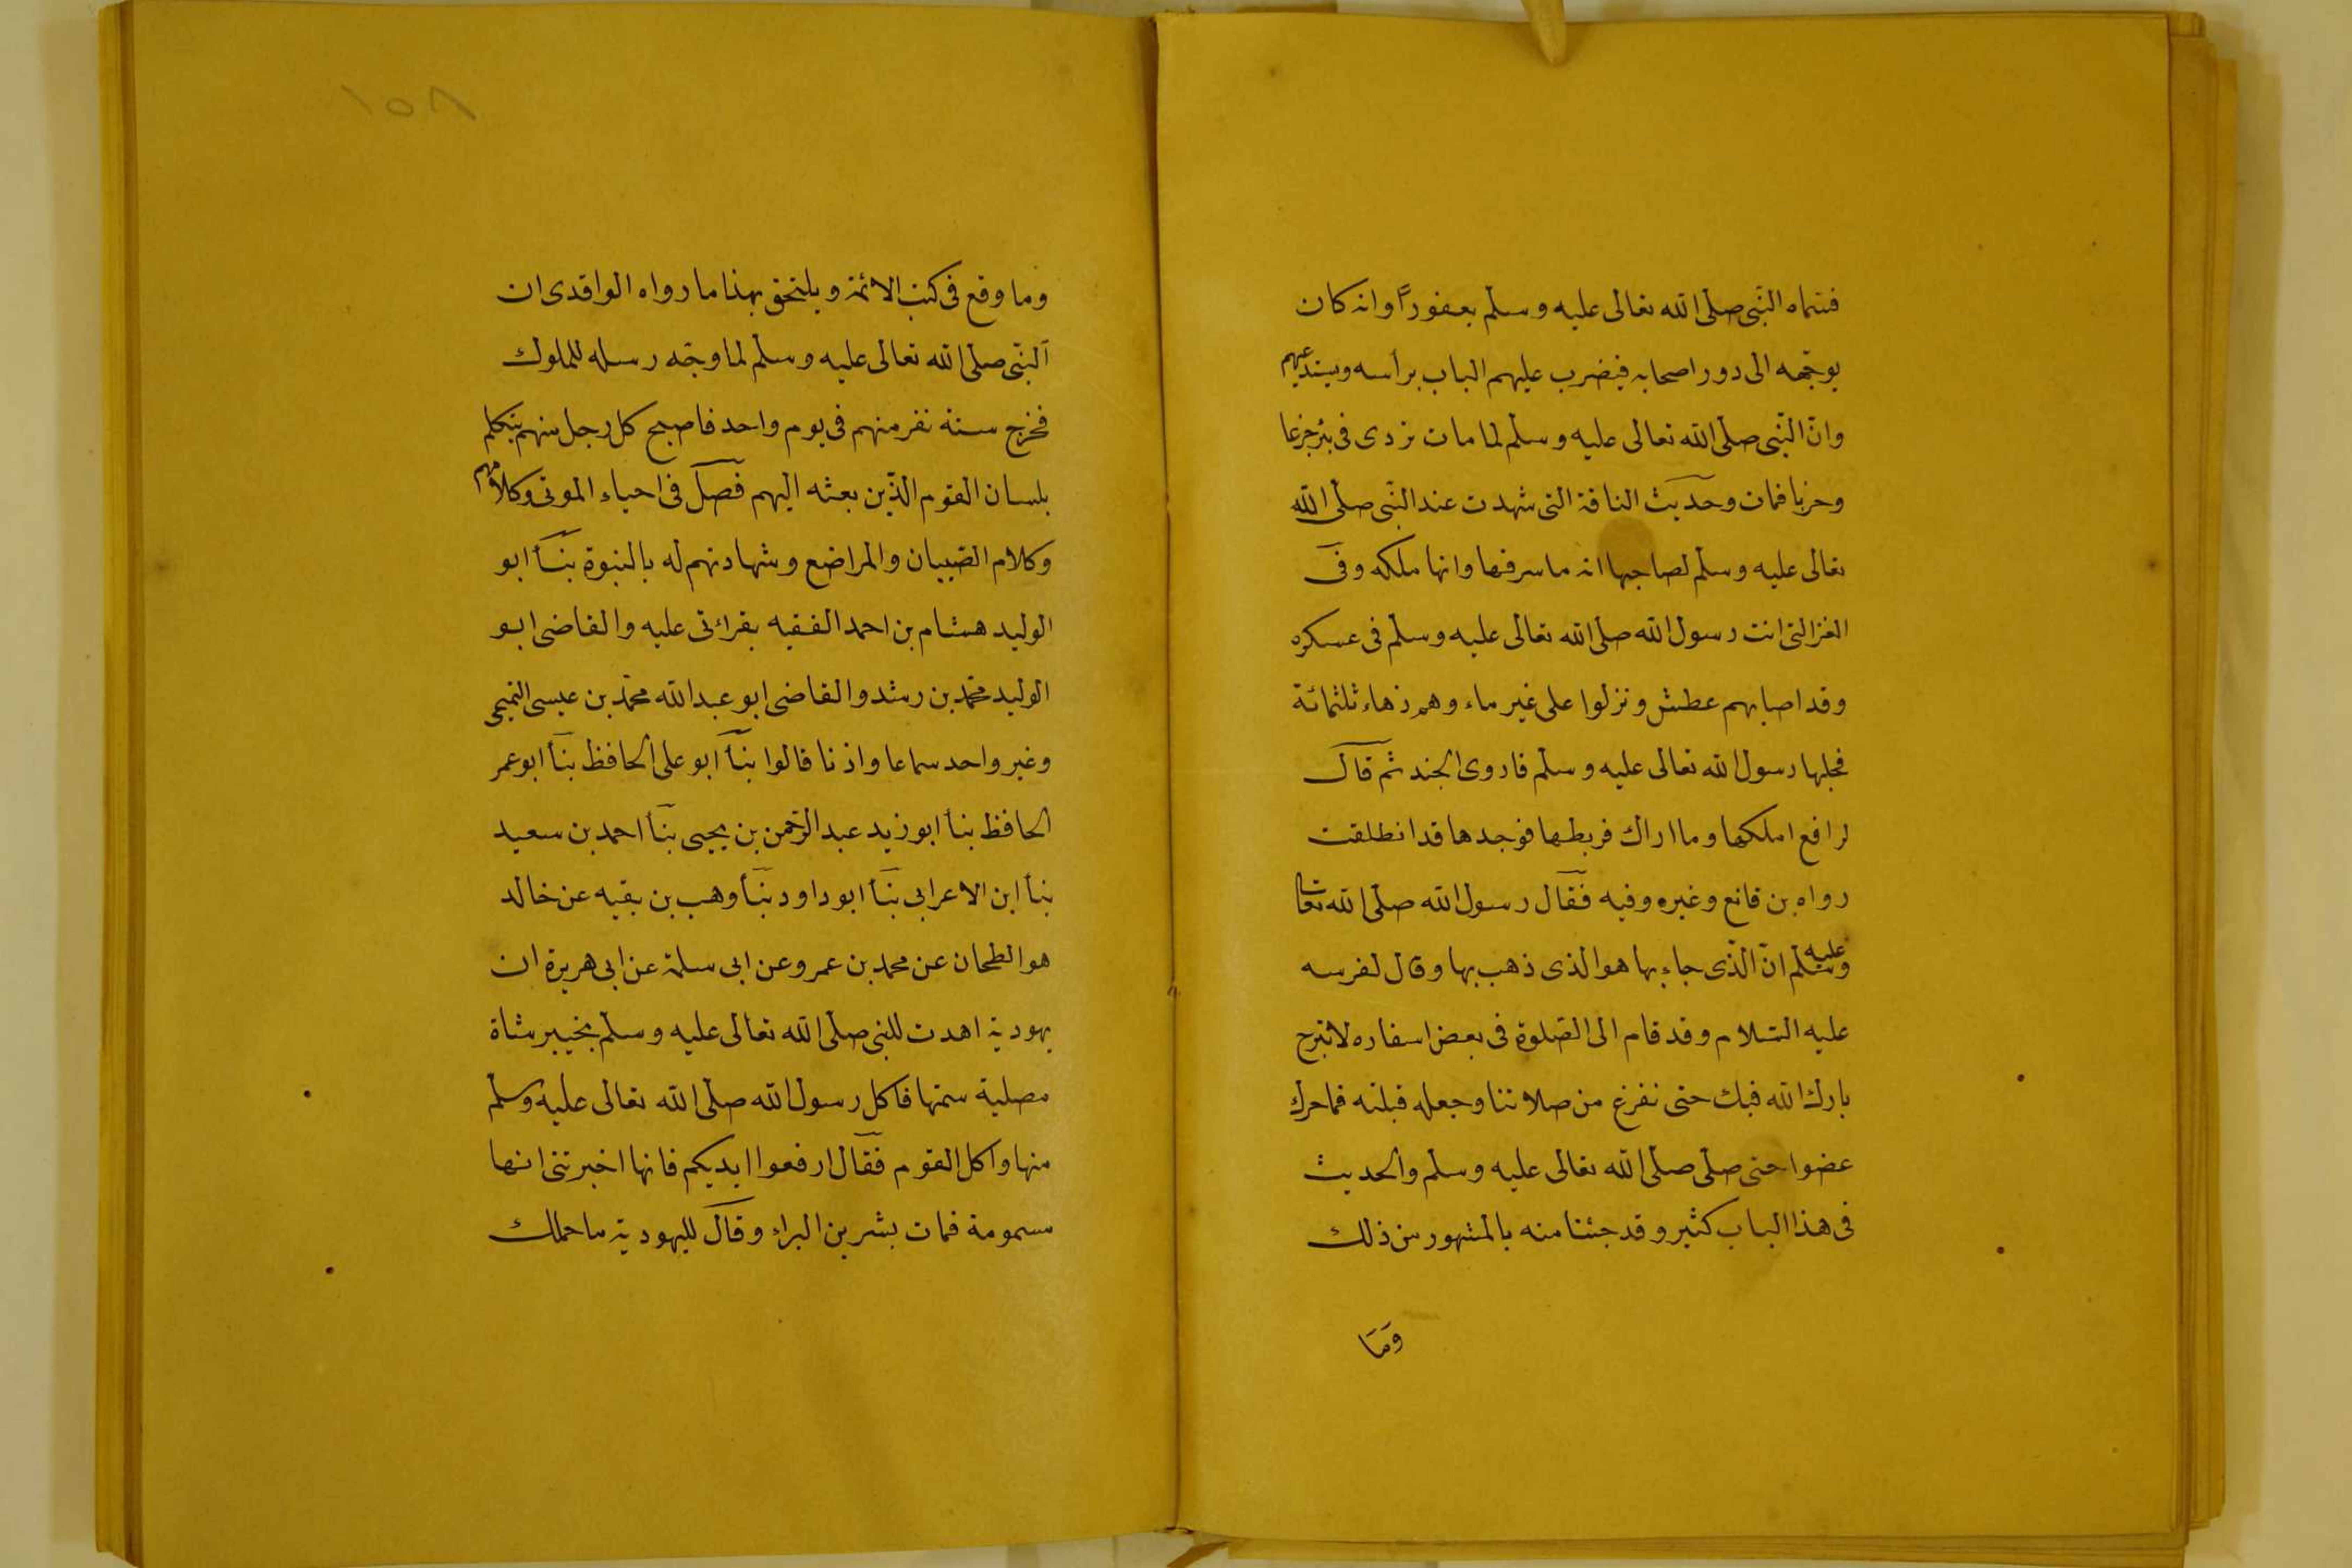 فسماه النّبى صلّى الله تعالى عليه وسلّم يعفوراً وانه كان
يوجّهه الى دور اصحابه فيضرب عليهم الباب برأسه ويستدعيهم
وانّ النّبى صلّى الله تعالى عليه وسلّم لما مات تردى فى بئر جزعا
وحزنا فمات وحديث الناقة التى شهدت عند النّبى صلّى الله
تعالى عليه وسلّم لصاحبها انه ما سرقها وانها ملكه وفى
العنز التى اتت رسول الله صلّى الله تعالى عليه وسلّم فى عسكره
وقد اصابهم عطش ونزلوا على غير ماء وهم زهاء ثلثمائة
فحلبها رسول الله تعالى عليه وسلّم فاروى الجند ثم قال
لرافع املكها وما اراك فربطها فوجدها قد انطلقت
رواه بن قانع وغيره وفيه فقال رسول الله صلّى الله تعا
عليه وسلّم انّ الّذى جاء بها هو الذى ذهب بها وقال لفرسه
عليه السّلام وقد قام الى الصّلوة فى بعض اسفاره لا تبرح
بارك الله فيك حتى نفرغ من صلاتنا وجعله قبلته فما حرك
عضوا حتى صلّى صلّى الله تعالى عليه وسلّم والحديث
فى هذا الباب كثير وقد جئنا منه بالمشهور من ذلك
وَمَا
١٥٨
وما وقع فى كتب الائمة ويلتحق بهذا ما رواه الواقدى ان
النّبّى صلّى الله تعالى عليه وسلّم لما وجّه رسله للملوك
فخرج ستة نفر منهم فى يوم واحد فاصبح كل رجل منهم يتكلم
بلسان القوم الّذين بعثه اليهم فصل فى احياء الموتى وكلامهم
وكلام الصّبيان والمراضع وشهادتهم له بالنبوة بنا ابو
الوليد هشام بن احمد الفقيه بقرائتى عليه والقاضى ابو
الوليد محمّد بن رشد والقاضى ابو عبد الله محمّد بن عيسى التميمى
وغير واحد سماعا واذنا قالوا بنا ابو على الحافظ بنا ابو عمر
الحافظ بنا ابو زيد عبد الرّحمن بن يحيى بنا احمد بن سعيد
بنا ابن الاعرابى بنا ابو داود بنا وهب بن بقيه عن خالد
هو الطحان عن محمد بن عمرو عن ابى سلمة عن ابى هريرة ان
يهودية اهدت للنبى صلّى الله تعالى عليه وسلّم بخيبر شاة
مصلية سمتها فاكل رسول الله صلّى الله تعالى عليه وسلّم
منها واكل القوم فقال ارفعوا ايديكم فانها اخبرتنى انها
مسمومة فمات بشر بن البراء وقال لليهودية ما حملك